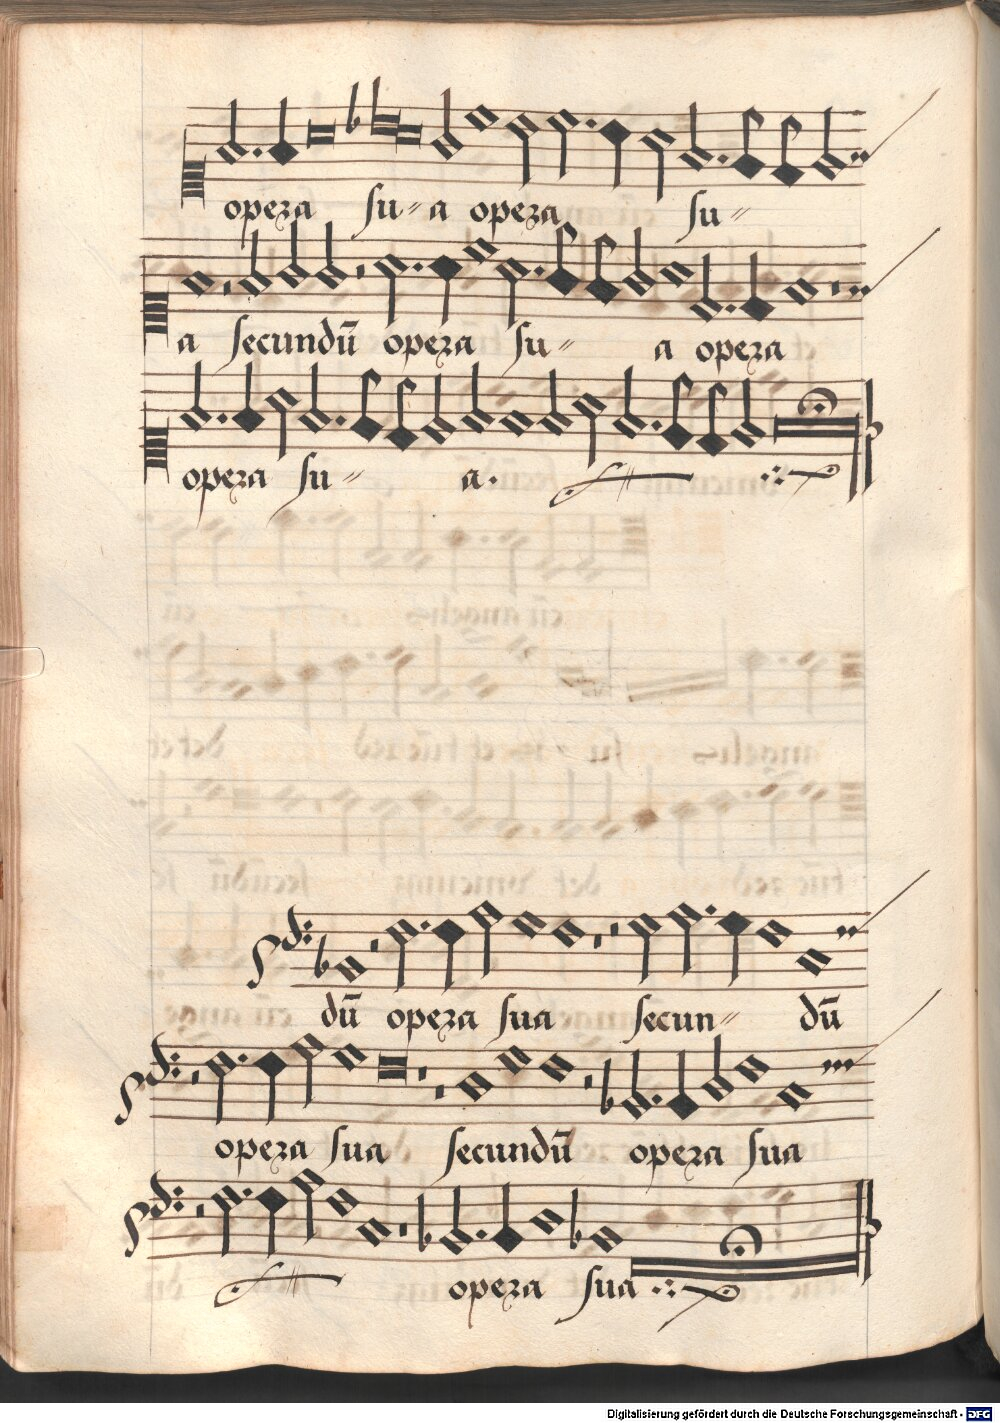 opera su-a opera su-
a secundū opera su- a opera
opera su- a.
dū opera sua secun- dū
opera sua secundū opera sua
opera sua
Digitalisierung gefördert durch die Deutsche Forschungsgemeinschaft - DFG